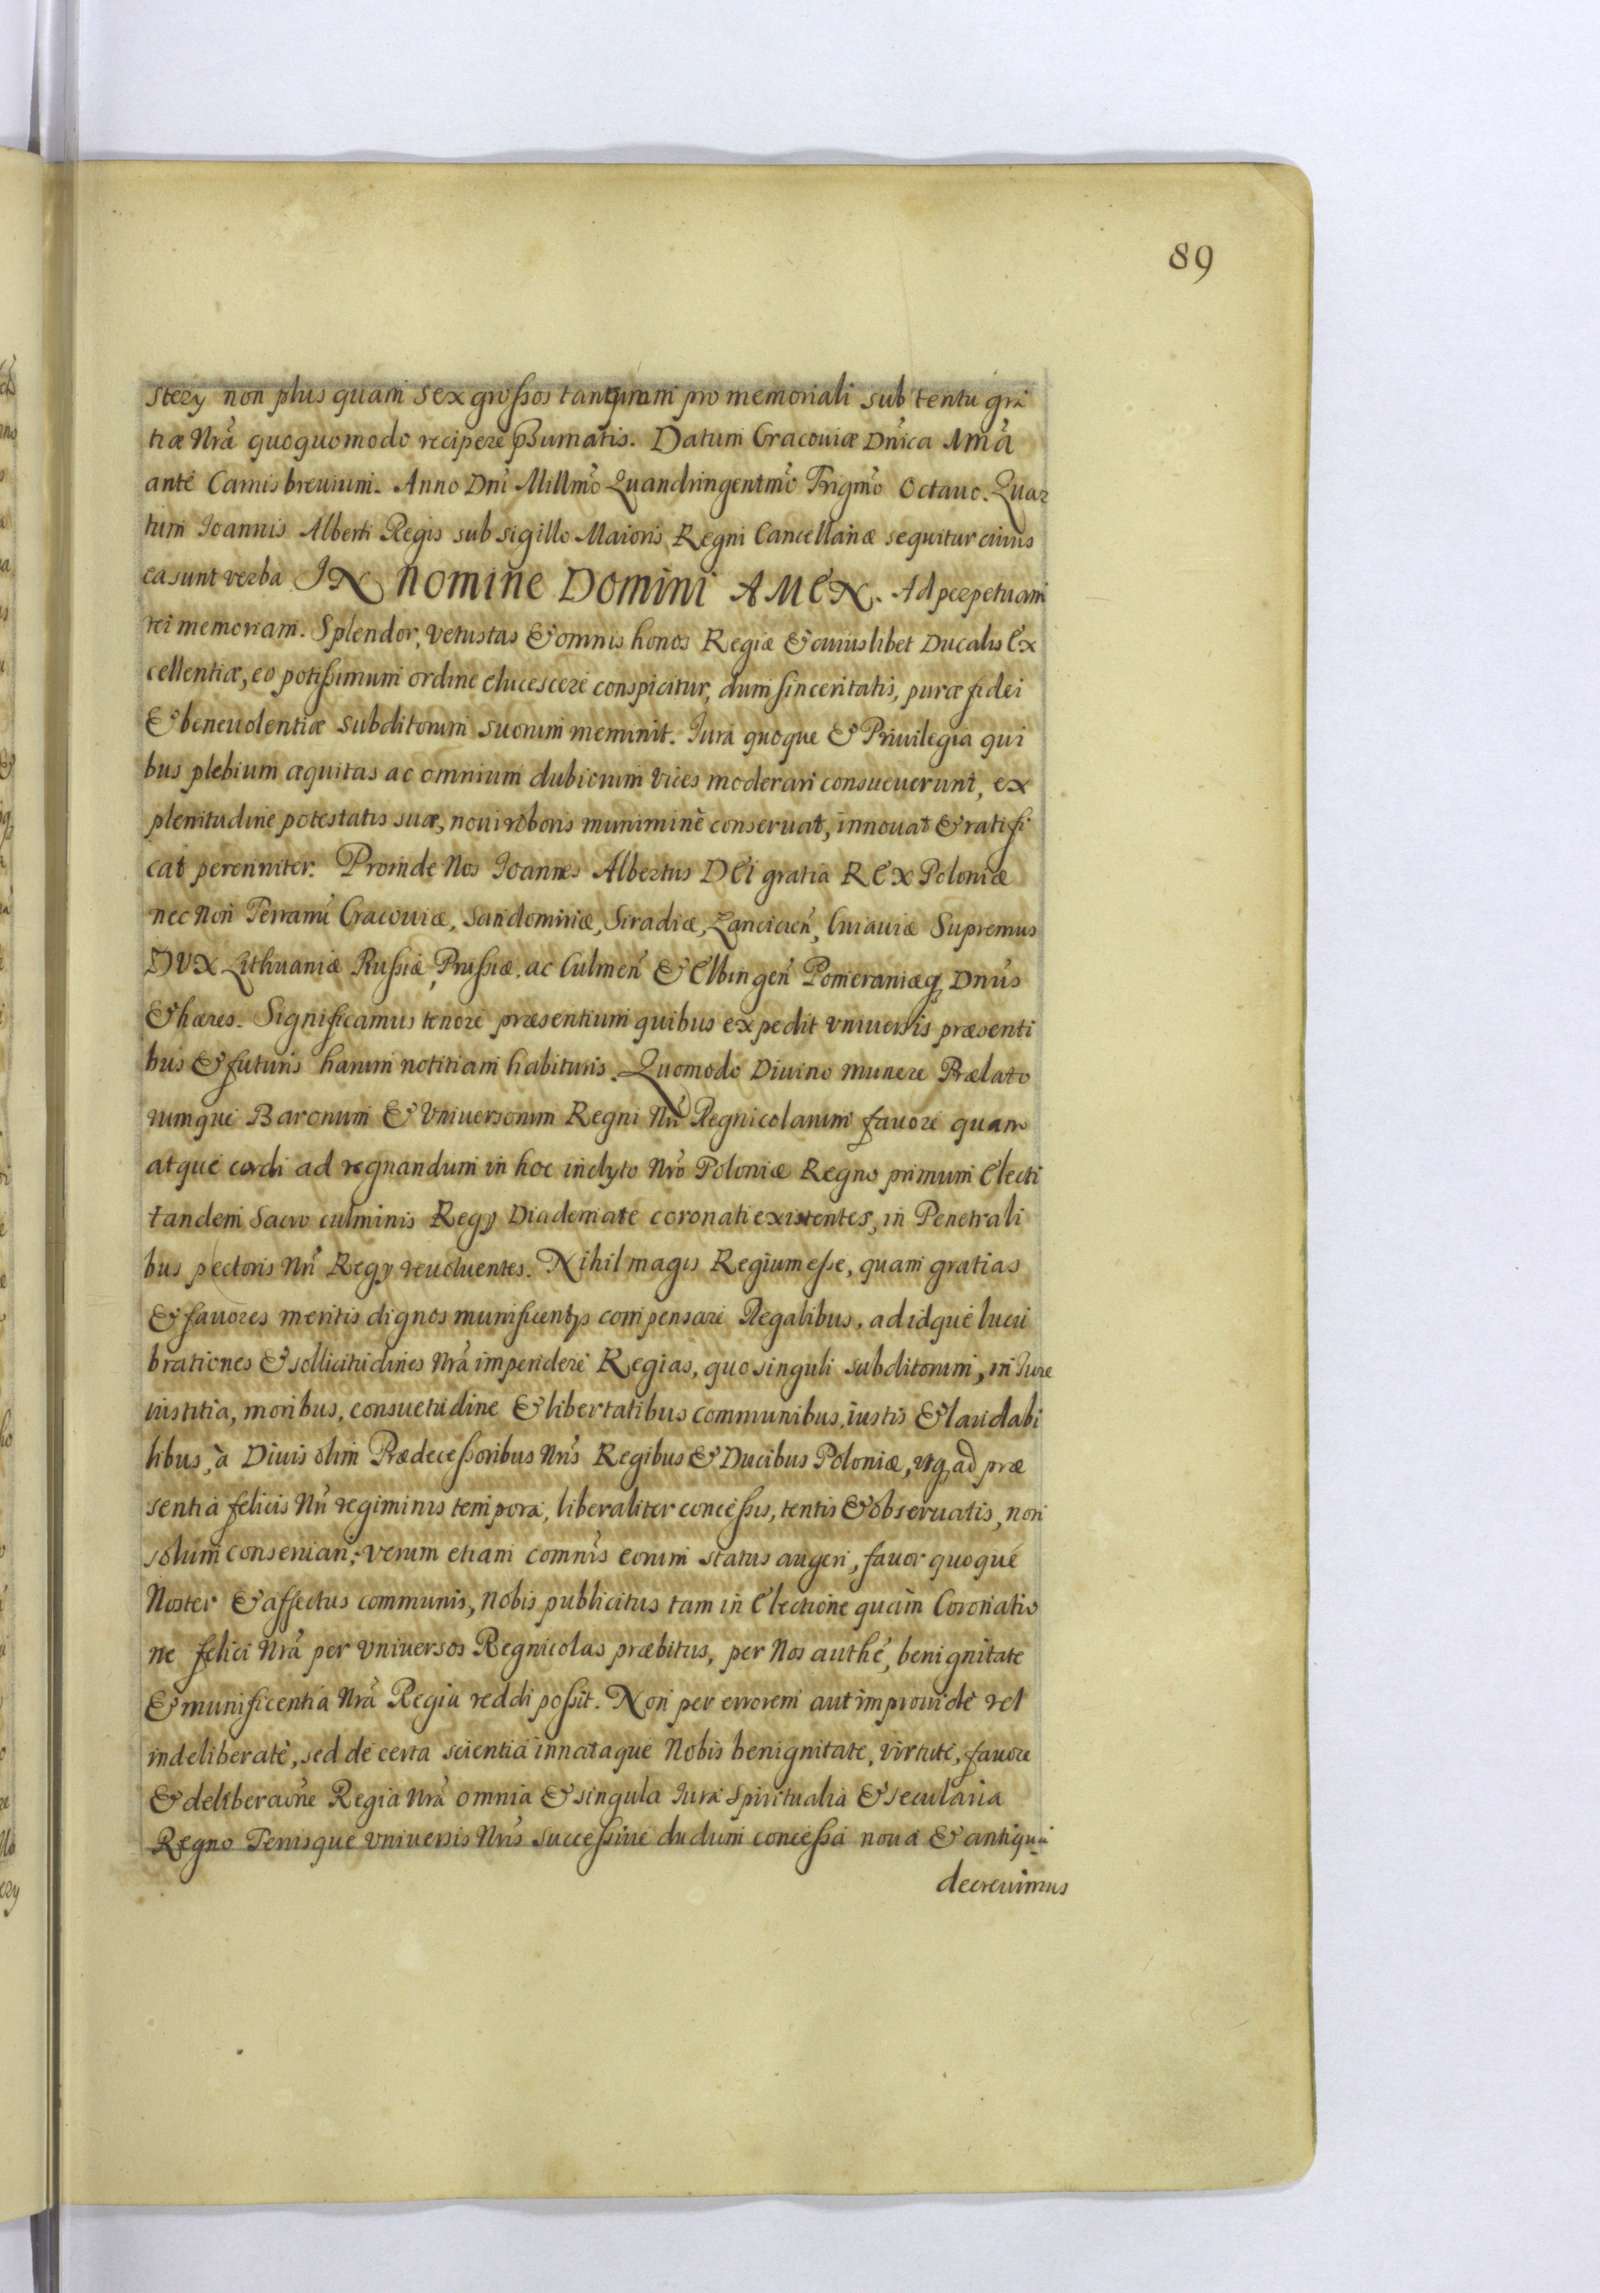 89
stery non plus quam sex grossos tantumm pro memoriali sub tentu gra
tiæ Nrã quoquomodo recipere Dumatis. Datum Cracouiæ Dnĩca Ima
ante Carnis breuium. Anno Dnĩ Millmõ Quandringentmõ Trigmõ Octauo. Quar
tum Ioannis Alberti Regis sub sigillo Maioris Regni Cancellariæ sequitur cuius
ea sunt verba IN NOMINE DOMINI AMEN. Ad perpetuam
rei memoriam. Splendor, vetustas & omnis honos Regiæ & cuiuslibet Ducalis Ex
cellentiæ, eo potissimum ordine elucescere conspicitur, dum sinceritatis, puræ fidei
& beneuolentiæ subditorum suorum meminit. Iura quoque & Priuilegia qui
bus plebium æquitas ac omnium dubiorum vices moderari consueuerunt, ex
plenitudine potestatis suæ, noui roboris munimine conseruat, innouat & ratifi
cat perenniter. Proinde Nos Ioannes Albertus DEI gratia REX Poloniæ
nec non Terrarũ Cracouiæ, Sandomiriæ, Siradiæ, Lancicieñ, Cuiauiæ Supremus
DVX Lithuaniæ Russiæ, Prussiæ, ac Culmeñ & Elbingeñ Pomeraniæq Dnũs
& hæres. Significamus tenore præsentium quibus expedit vniuersis præsenti
bus & futuris harum notitiam habituris. Quomodo Diuino munere Prælato
rumque Baronum & Vniuersorum Regni Nrĩ Regnicolarum fauore quam
atque cordi ad regnandum in hoc inclyto Nrõ Poloniæ Regno primum Electi
tandem Sacro culminis Regy Diademate coronati existentes, in Penetrali
bus pectoris Nrĩ Regy reuoluentes. Nihil magis Regium esse, quam gratias
& fauores meritis dignos munificentys compensare Regalibus, ad idque lucu
brationes & sollicitudines Nrã impendere Regias, quo singuli subditorum, in Iure
iustitia, moribus, consuetudine & libertatibus communibus, iustis & laudabi
libus, à Diuis olim Prædecessoribus Nrĩs Regibus & Ducibus Poloniæ, vsq ad præ
sentia felicis Nrĩ regiminis tempora, liberaliter concessis, tentis & obseruatis, non
solum conseruari, verum etiam comnĩs eorum status augeri, fauor quoque
Noster & affectus communis, Nobis publicitus tam in Electione quàm Coronatio
ne felici Nrã per vniuersos Regnicolas præbitus, per Nos authẽ, benignitate
& munificentia Nrã Regia reddi possit. Non per errorem aut improuidè vel
indeliberatè, sed de certa scientia innataque Nobis benignitate, virtute, fauore
& deliberaõne Regia Nrã omnia & singula Iura Spiritualia & secularia
Regno Terrisque vniuersis Nrĩs successiuè dudum concessa noua & antiqua
decreuimus